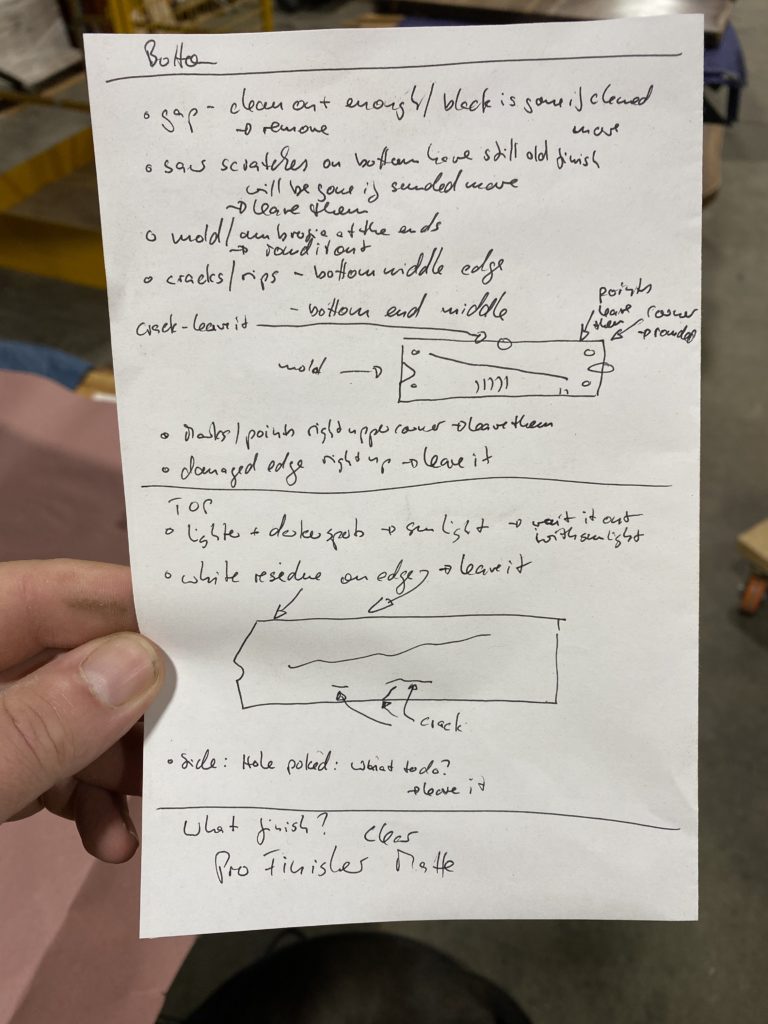 Bottom
• gap - clean out enough/ black is gone if cleaned
→ remove more
• saw scratches on bottom have still old finish
will be gone if sanded more
→ leave them
• mold/ambrosia at the ends
→ sand it out
• cracks/rips - bottom middle edge
- bottom end middle
points leave them
corner → rounded
crack-leave it
mold →
• Marks/points right upper corner → leave them
• damaged edge right up → leave it
TOP
• lighter + darker spots → sun light → wait it out
with sunlight
• white residue on edge → leave it
crack
• Side: Hole poked: What to do?
→ leave it
What finish? Clear
Pro Finisher Matte